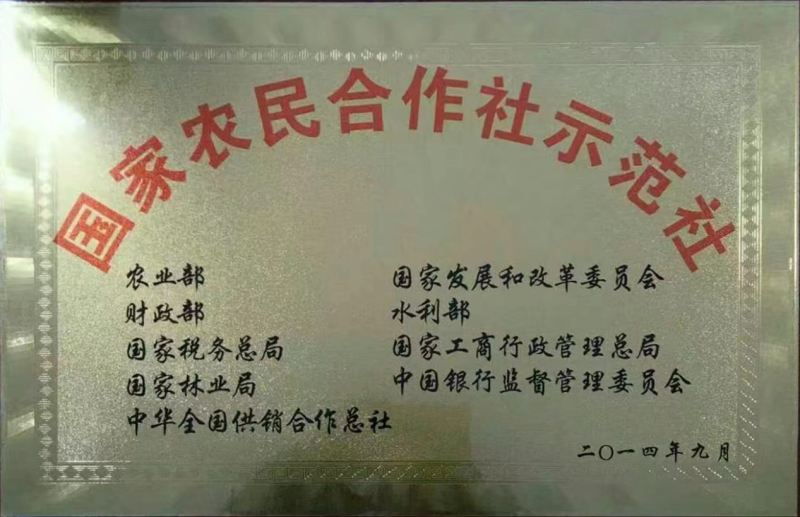 国家农民合作社示范社
农业部 国家发展和改革委员会
财政部 水利部
国家税务总局 国家工商行政管理总局
国家林业局 中国银行监督管理委员会
中华全国供销合作总社
二〇一四年九月